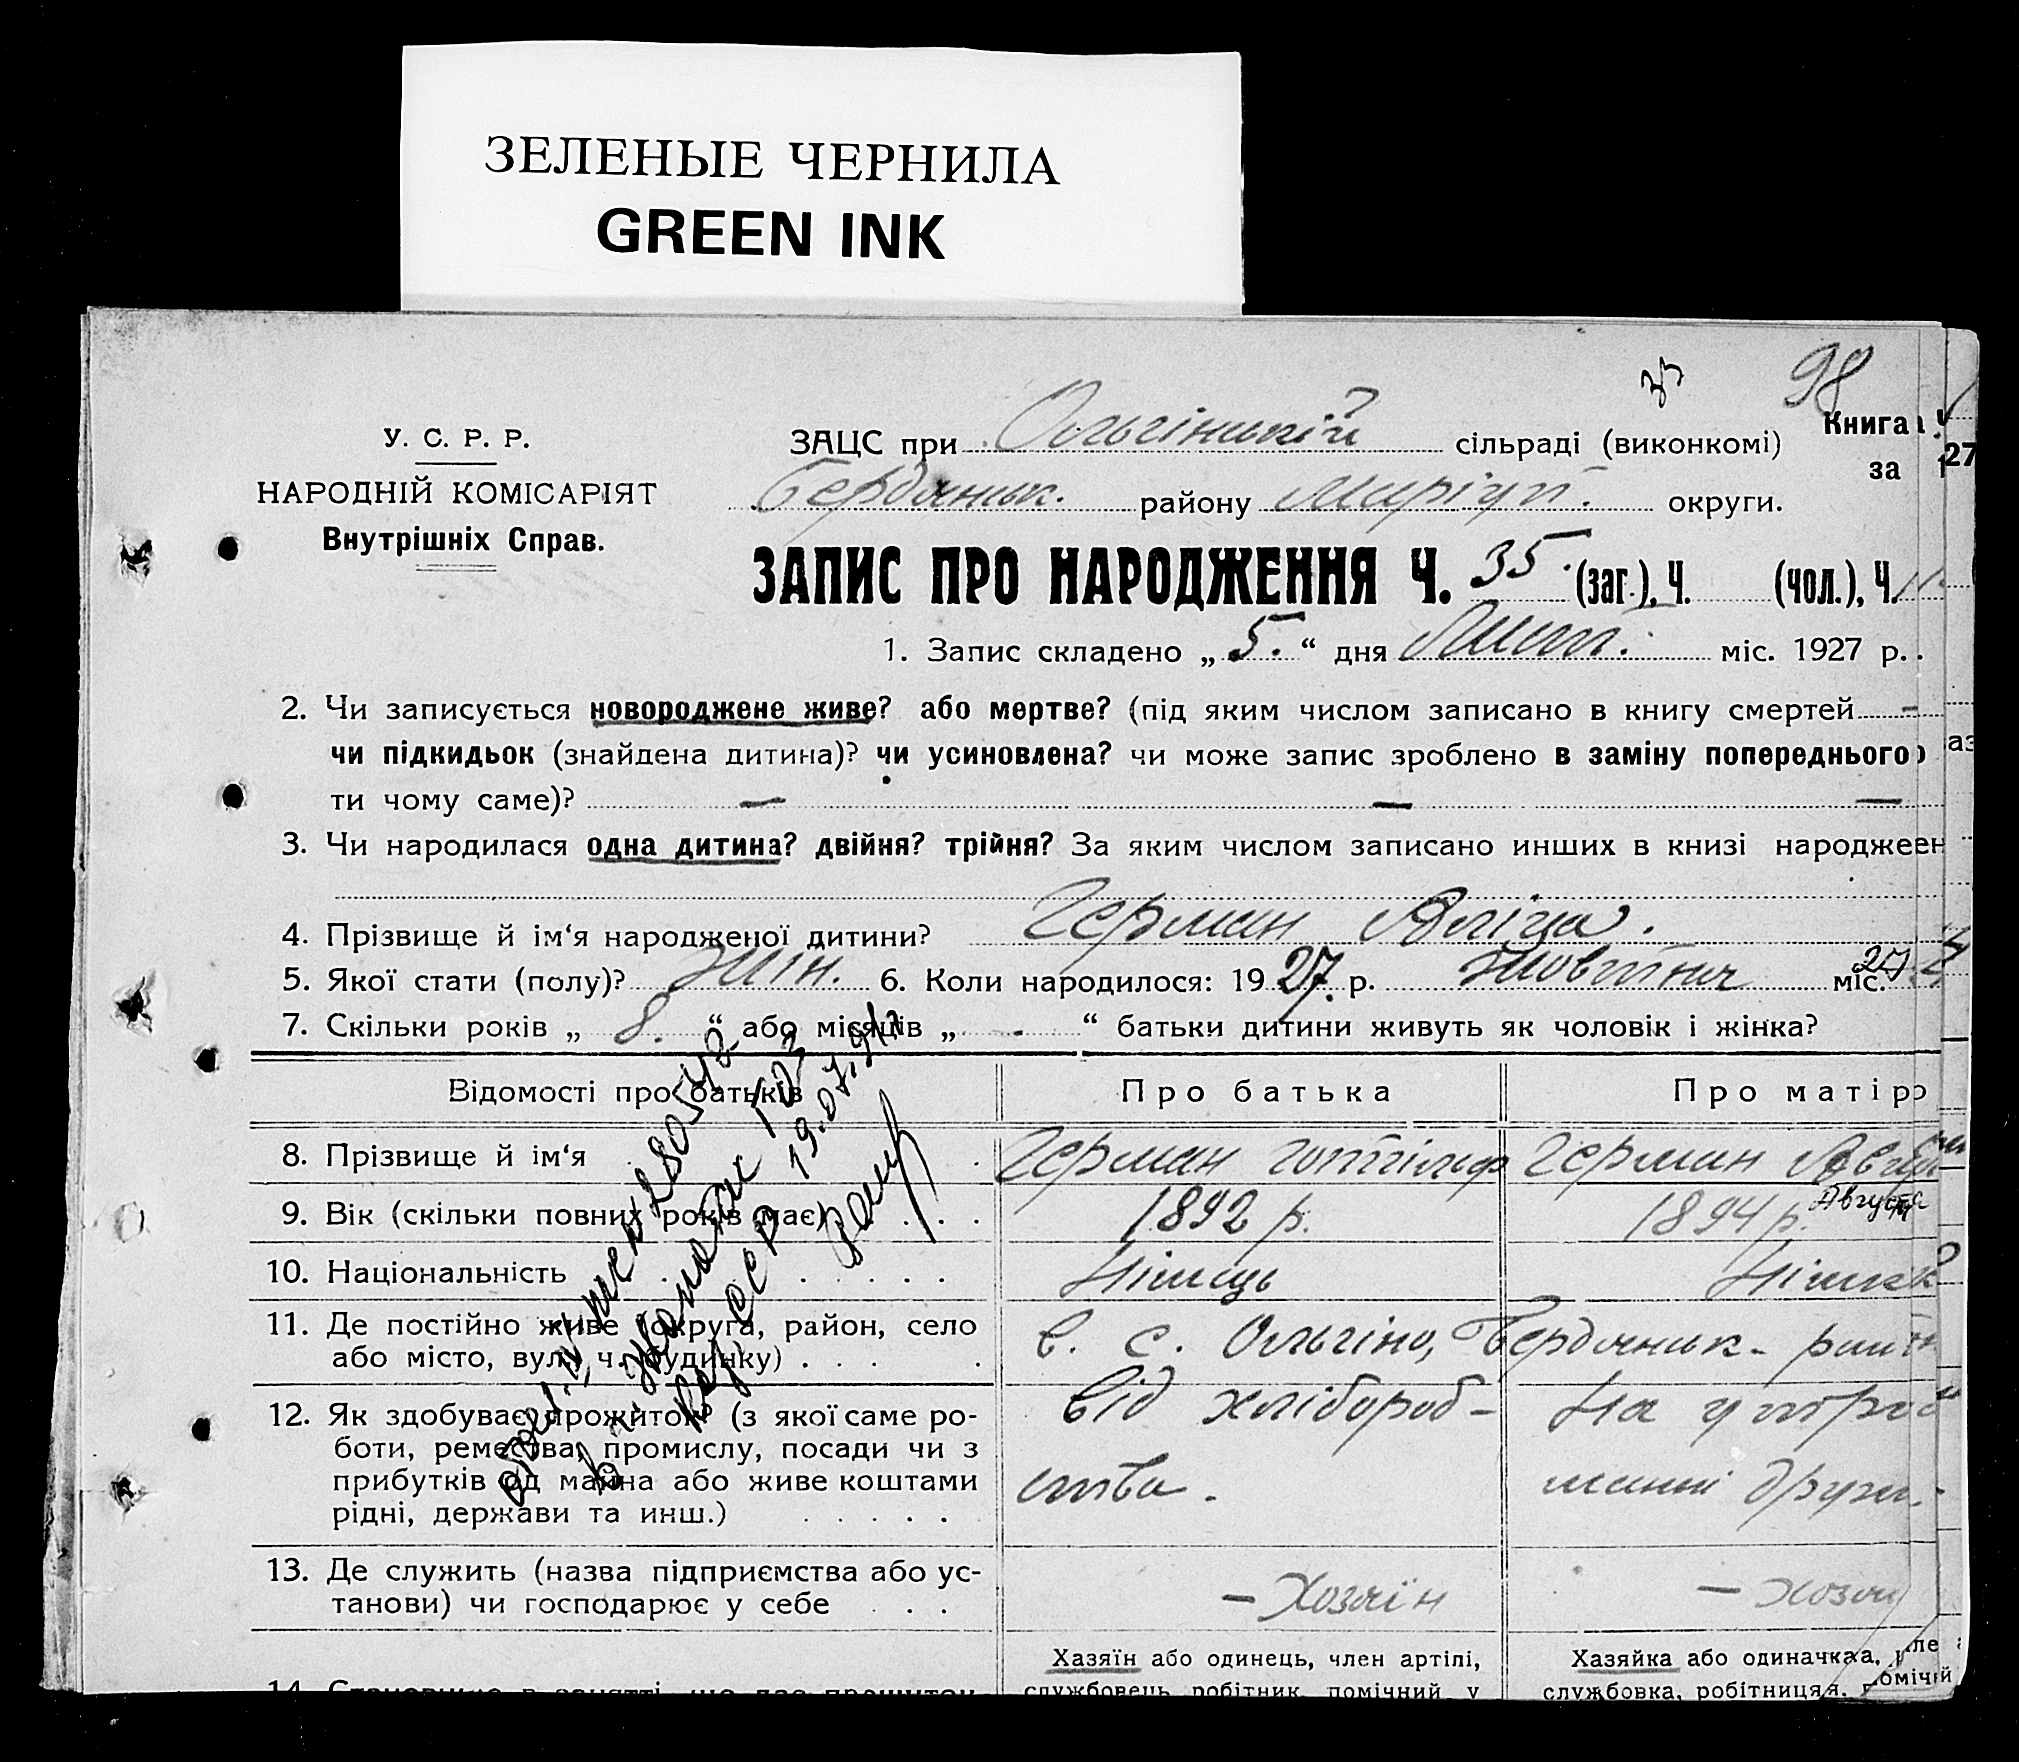 ЗЕЛЕНЫЕ ЧЕРНИЛА
GREEN INK
98
У. С. Р. Р.
НАРОДНІЙ КОМІСАРІЯТ
Внутрішніх Справ.
ЗАЦС при Ольгінській сільраді (виконкомі)
Книга
27
за
Бердянськ. району Маріуп. округи.
ЗАПИС ПРО НАРОДЖЕННЯ Ч. 35. (заг.), Ч. (чол.), Ч.
1. Запис складено „ 5. “ дня Лист. міс. 1927 р.
2. Чи записується новороджене живе? або мертве? (під яким числом записано в книгу смертей –
чи підкидьок (знайдена дитина)? чи усиновлена? чи може запис зроблено в заміну попереднього
ти чому саме)? — — —
3. Чи народилася одна дитина? двійня? трійня? За яким числом записано инших в книзі
4. Прізвище й ім‘я народженої дитини? Герман Аліца.
5. Якої стати (полу)? Жін. 6. Коли народилося: 19 27. р. Жовтня міс. 27
7. Скільки років „ 8. “ або місяців „ - “ батьки дитини живуть як чоловік і жінка?
Відомості про батьків
Про батька
Про матір
8. Прізвище й ім‘я
Герман Готтільф
Герман
Августа
9. Вік (скільки повних років має)
1892 р.
1894 р.
10. Національність
Німець
11. Де постійно живе (округа, район, село
або місто, вул. ч. будинку)
в. с. Ольгіно, Бердянськ-
12. Як здобуває прожиток (з якої саме ро-
боти, ремества, промислу, посади чи з
прибутків од майна або живе коштами
рідні, держави та инш.)
Від хлібороб-
ства.
На утри
манні друж.
13. Де служить (назва підприємства або ус-
танови) чи господарює у себе
– Хозяїн
–
19.07.
Хазяїн або одинець, член артілі,
службовець, робітник, помічний у
Хазяйка або одиначка,
службовка, робітниця,